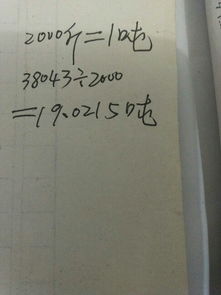 2000斤=1吨
38043÷2000
=19.0215吨